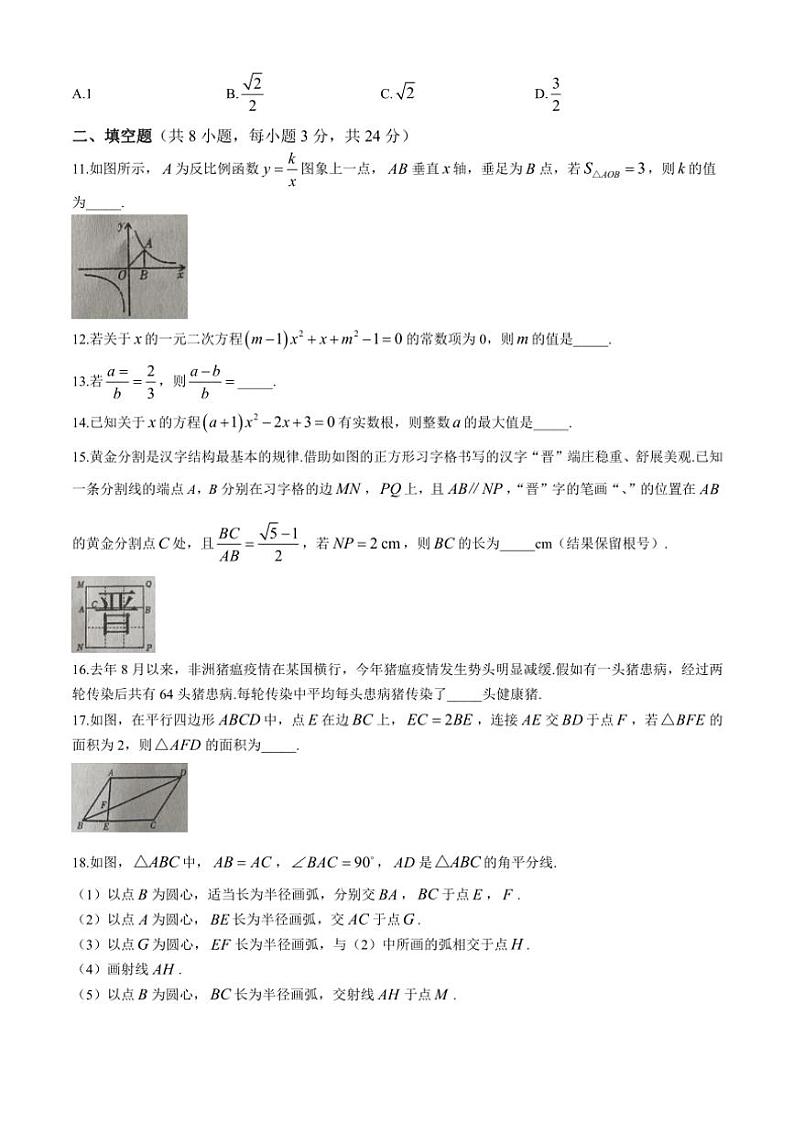 A.1 B.$\frac{\sqrt{2}}{2}$ C.$\sqrt{2}$ D.$\frac{3}{2}$
二、填空题（共 8 小题，每小题 3 分，共 24 分）
11.如图所示，A 为反比例函数 $y=\frac{k}{x}$ 图象上一点，AB 垂直 x 轴，垂足为 B 点，若 $S_{△AOB}=3$，则 k 的值
为_____.
y
A
O B x
12.若关于 x 的一元二次方程 $(m-1)x^2+x+m^2-1=0$ 的常数项为 0，则 m 的值是_____.
13.若 $\frac{a=}{b}=\frac{2}{3}$，则 $\frac{a-b}{b}=$_____.
14.已知关于 x 的方程 $(a+1)x^2-2x+3=0$ 有实数根，则整数 a 的最大值是_____.
15.黄金分割是汉字结构最基本的规律.借助如图的正方形习字格书写的汉字“晋”端庄稳重、舒展美观.已知
一条分割线的端点 A，B 分别在习字格的边 MN，PQ 上，且 AB∥NP，“晋”字的笔画“、”的位置在 AB
的黄金分割点 C 处，且 $\frac{BC}{AB}=\frac{\sqrt{5}-1}{2}$，若 NP=2 cm，则 BC 的长为_____cm（结果保留根号）.
M Q
A C B
晋
N P
16.去年 8 月以来，非洲猪瘟疫情在某国横行，今年猪瘟疫情发生势头明显减缓.假如有一头猪患病，经过两
轮传染后共有 64 头猪患病.每轮传染中平均每头患病猪传染了_____头健康猪.
17.如图，在平行四边形 ABCD 中，点 E 在边 BC 上，EC=2BE，连接 AE 交 BD 于点 F，若△BFE 的
面积为 2，则△AFD 的面积为_____.
A D
F
B E C
18.如图，△ABC 中，AB=AC，∠BAC=90°，AD 是△ABC 的角平分线.
（1）以点 B 为圆心，适当长为半径画弧，分别交 BA，BC 于点 E，F.
（2）以点 A 为圆心，BE 长为半径画弧，交 AC 于点 G.
（3）以点 G 为圆心，EF 长为半径画弧，与（2）中所画的弧相交于点 H.
（4）画射线 AH.
（5）以点 B 为圆心，BC 长为半径画弧，交射线 AH 于点 M.